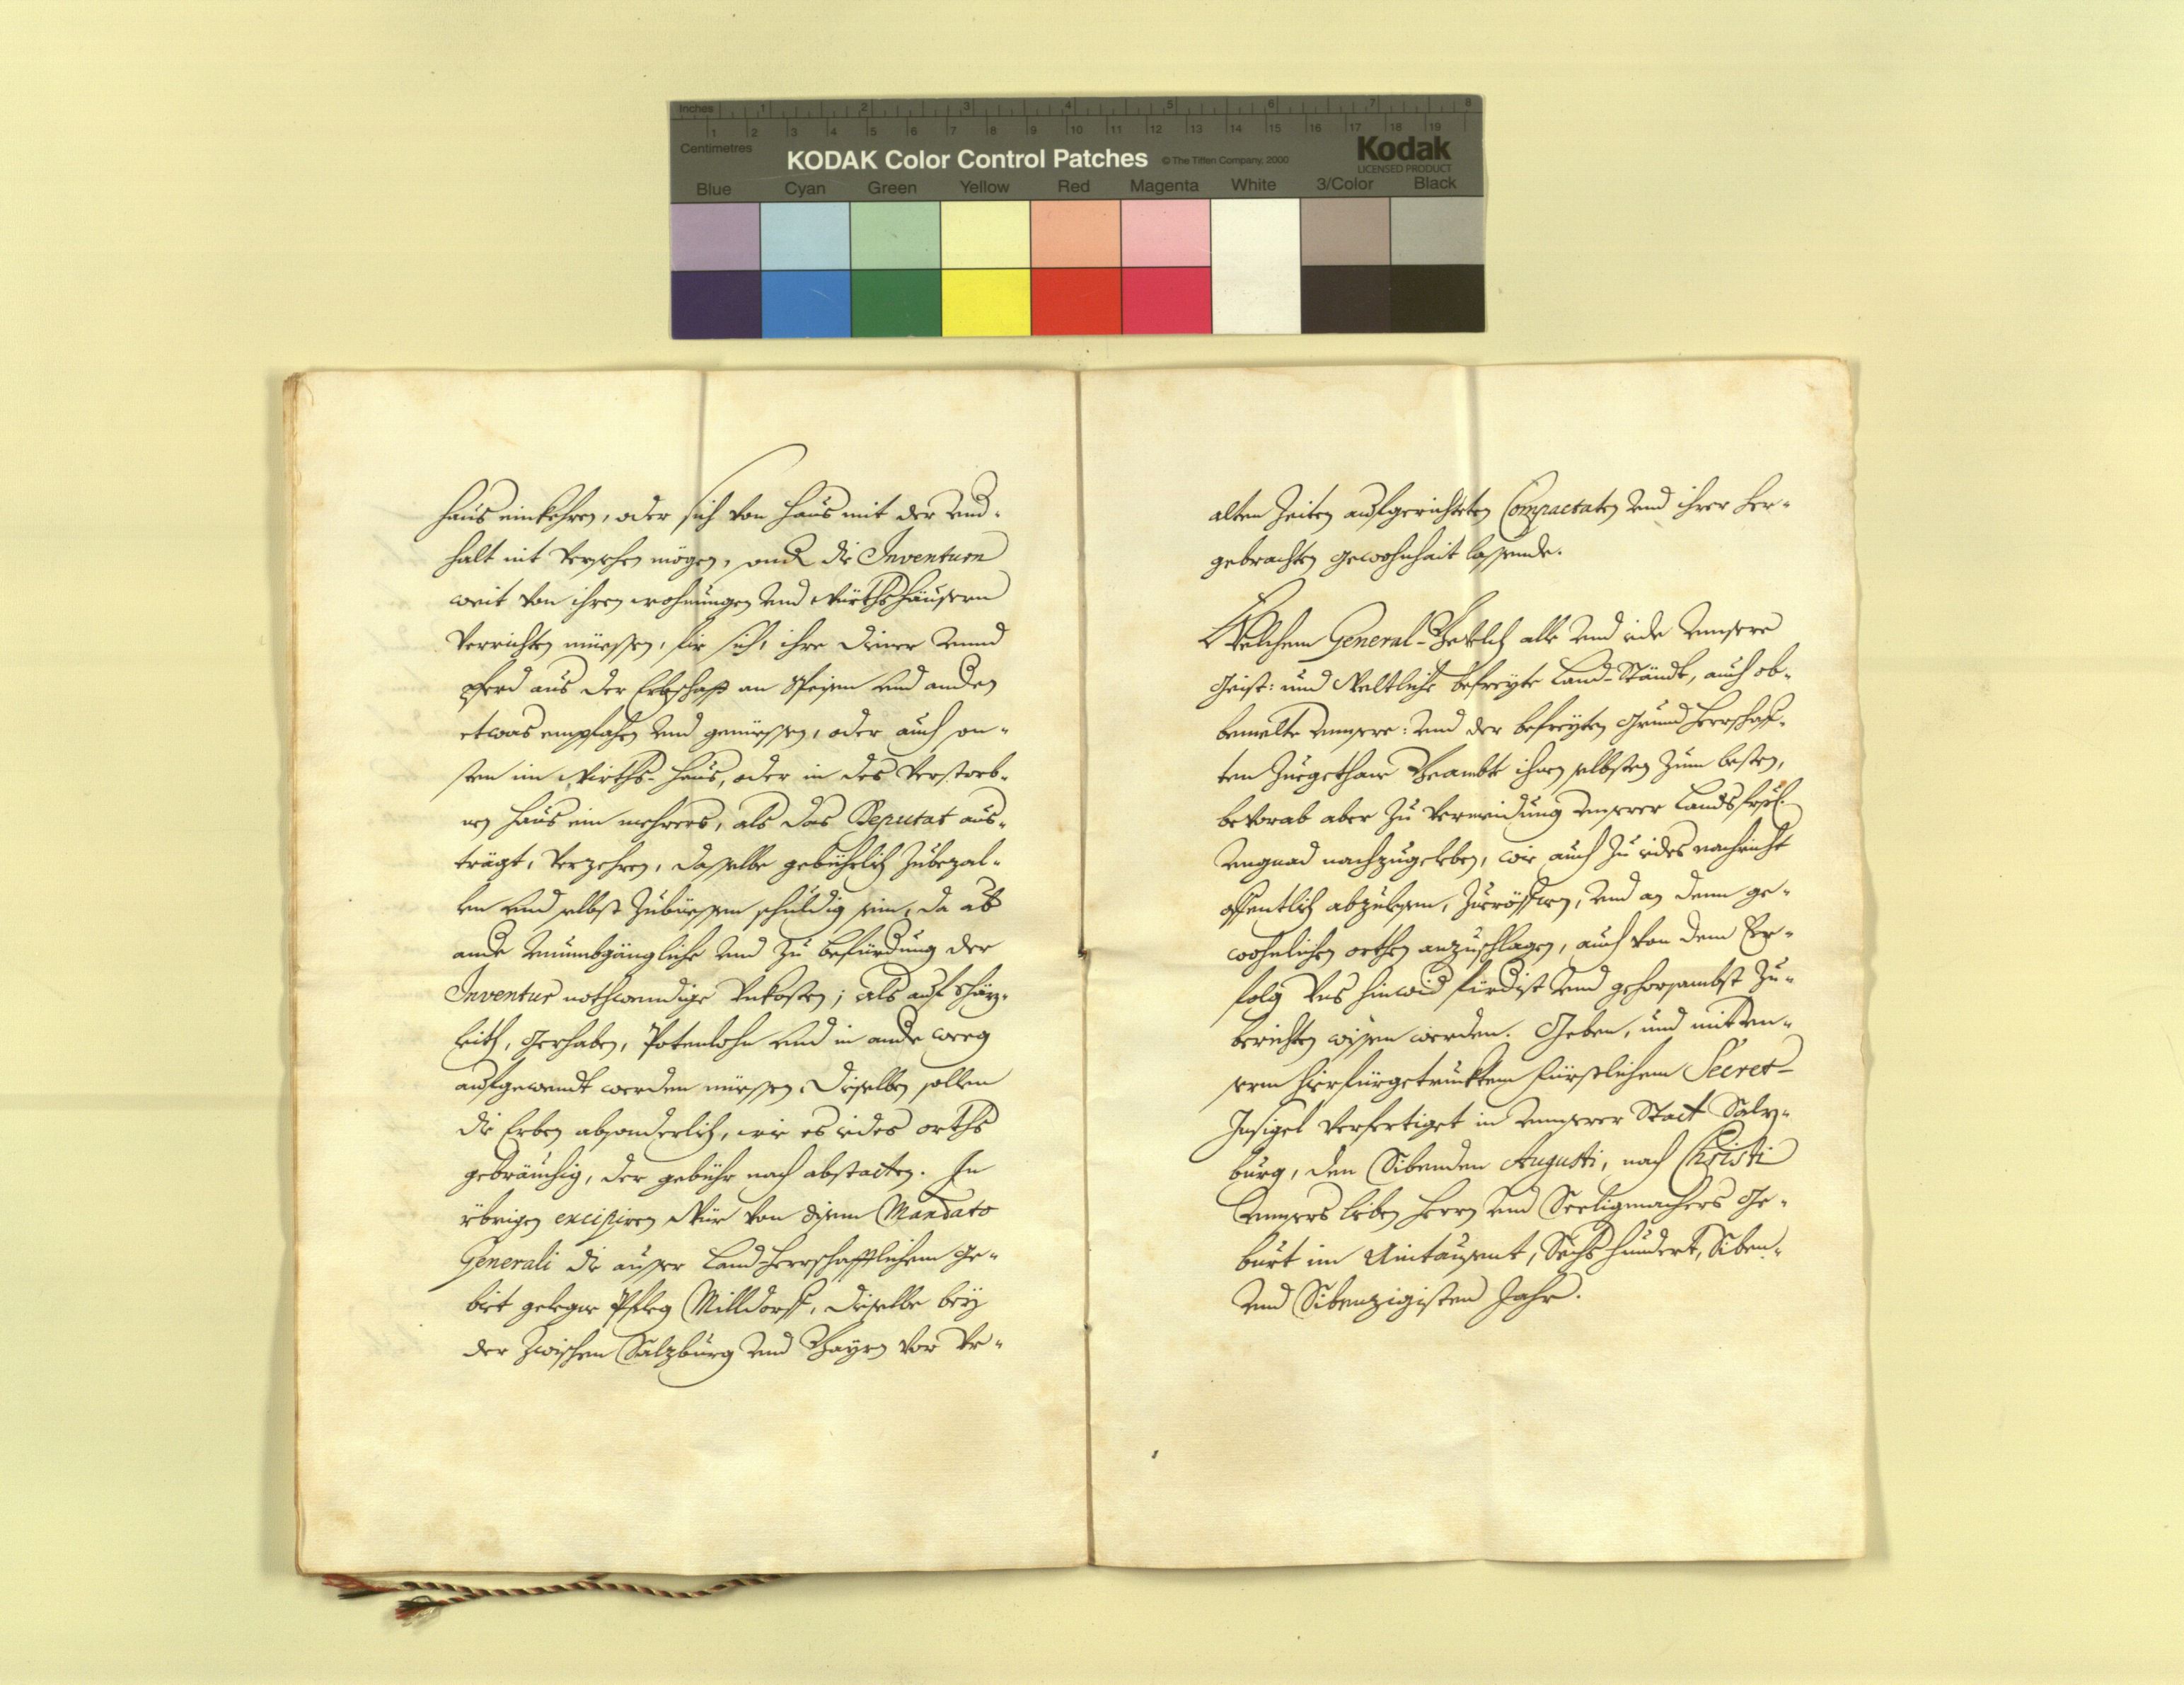 Inches 1 2 3 4 5 6 7 8
1 2 3 4 5 6 7 8 9 10 11 12 13 14 15 16 17 18 19
Centimetres
KODAK Color Control Patches © The Tiffen Company, 2000 Kodak
LICENSED PRODUCT
Blue Cyan Green Yellow Red Magenta White 3/Color Black
haus einkehren, oder sich von haus mit der Und-
halt nit versehen mögen, die Inventurn
weit von ihren wohnungen und Würthshäusern
verrichten müessen, für sich, ihre diener unnd
Pferd aus der Erbschafft an Speisen und andern
etwas empfahen und geniessen, oder auch son-
sten im Wirths-haus, oder in des verstorb-
nen haus ein mehrers, als das Deputat aus-
trägt, verzehren, dasselbe gebührlich zubezal-
len und selbst zubüessen schuldig sein, da aber
andere unumbgängliche und zu befürderung der
Inventur nothwendige Unkosten; als auf Schäz-
leith, Gerhaben, Potenlohn und in andere weeg
aufgewendt werden müessen, dieselben sollen
die Erben absonderlich, wie es iedes orths
gebräuchig, der gebühr nach abstatten. In
übrigen excipiren Wür von disem Mandato
Generali die ausser Land-herrschafftlichem ge-
biet gelegne Pfleg Milldorff, dieselbe bey
der zwischen Salzburg und Bayrn vor Ur-
alten Zeiten aufgerichteten Compactaten und ihrer her-
gebrachten gewohnhait lassende.
Welchem General-Bevelch alle und iede unnsere
Geist: und Weltliche befreyte Land-Stände, auch ob-
bemelte unnsere: und der befreyten Grundherrschaf-
ten zuegethane Beambte ihnen selbsten zum besten,
bevorab aber zu vermeidung unserer Landsfrstl.
ungnad nachzugeleben, wie auch zu iedes nachricht
offentlich abzulesen, zueröffnen, und an denn ge-
wohnlichen orthen anzuschlagen, auch von dem Er-
folg Uns hinwider fürderist und gehorsambst zu-
berichten wissen werden. Geben, und mit Un-
serm hierfürgetrucktem fürstlichem Secret-
Insigel verfertiget in unnserer Statt Salz-
burg, den Sibenden Augusti, nach Christi
unnsers lieben Herrn und Seeligmachers Ge-
burt im Aintausent, Sechshundert, Siben-
und Sibenzigisten Jahr.